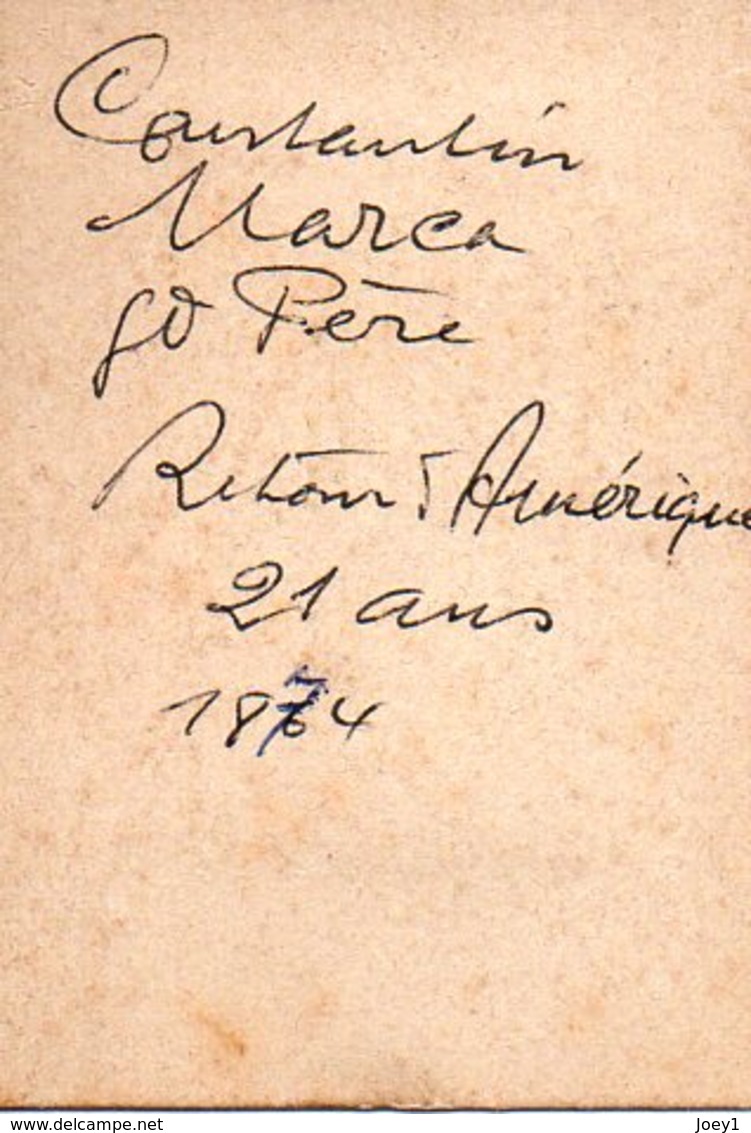 Constantin
Marca
gd Père
Retour d'Amérique
21 ans
1874
www.delcampe.net
Joey1